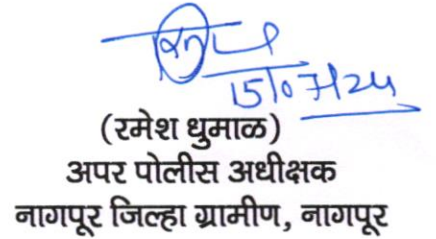 15/07/24
(रमेश धुमाळ)
अपर पोलीस अधीक्षक
नागपूर जिल्हा ग्रामीण, नागपूर